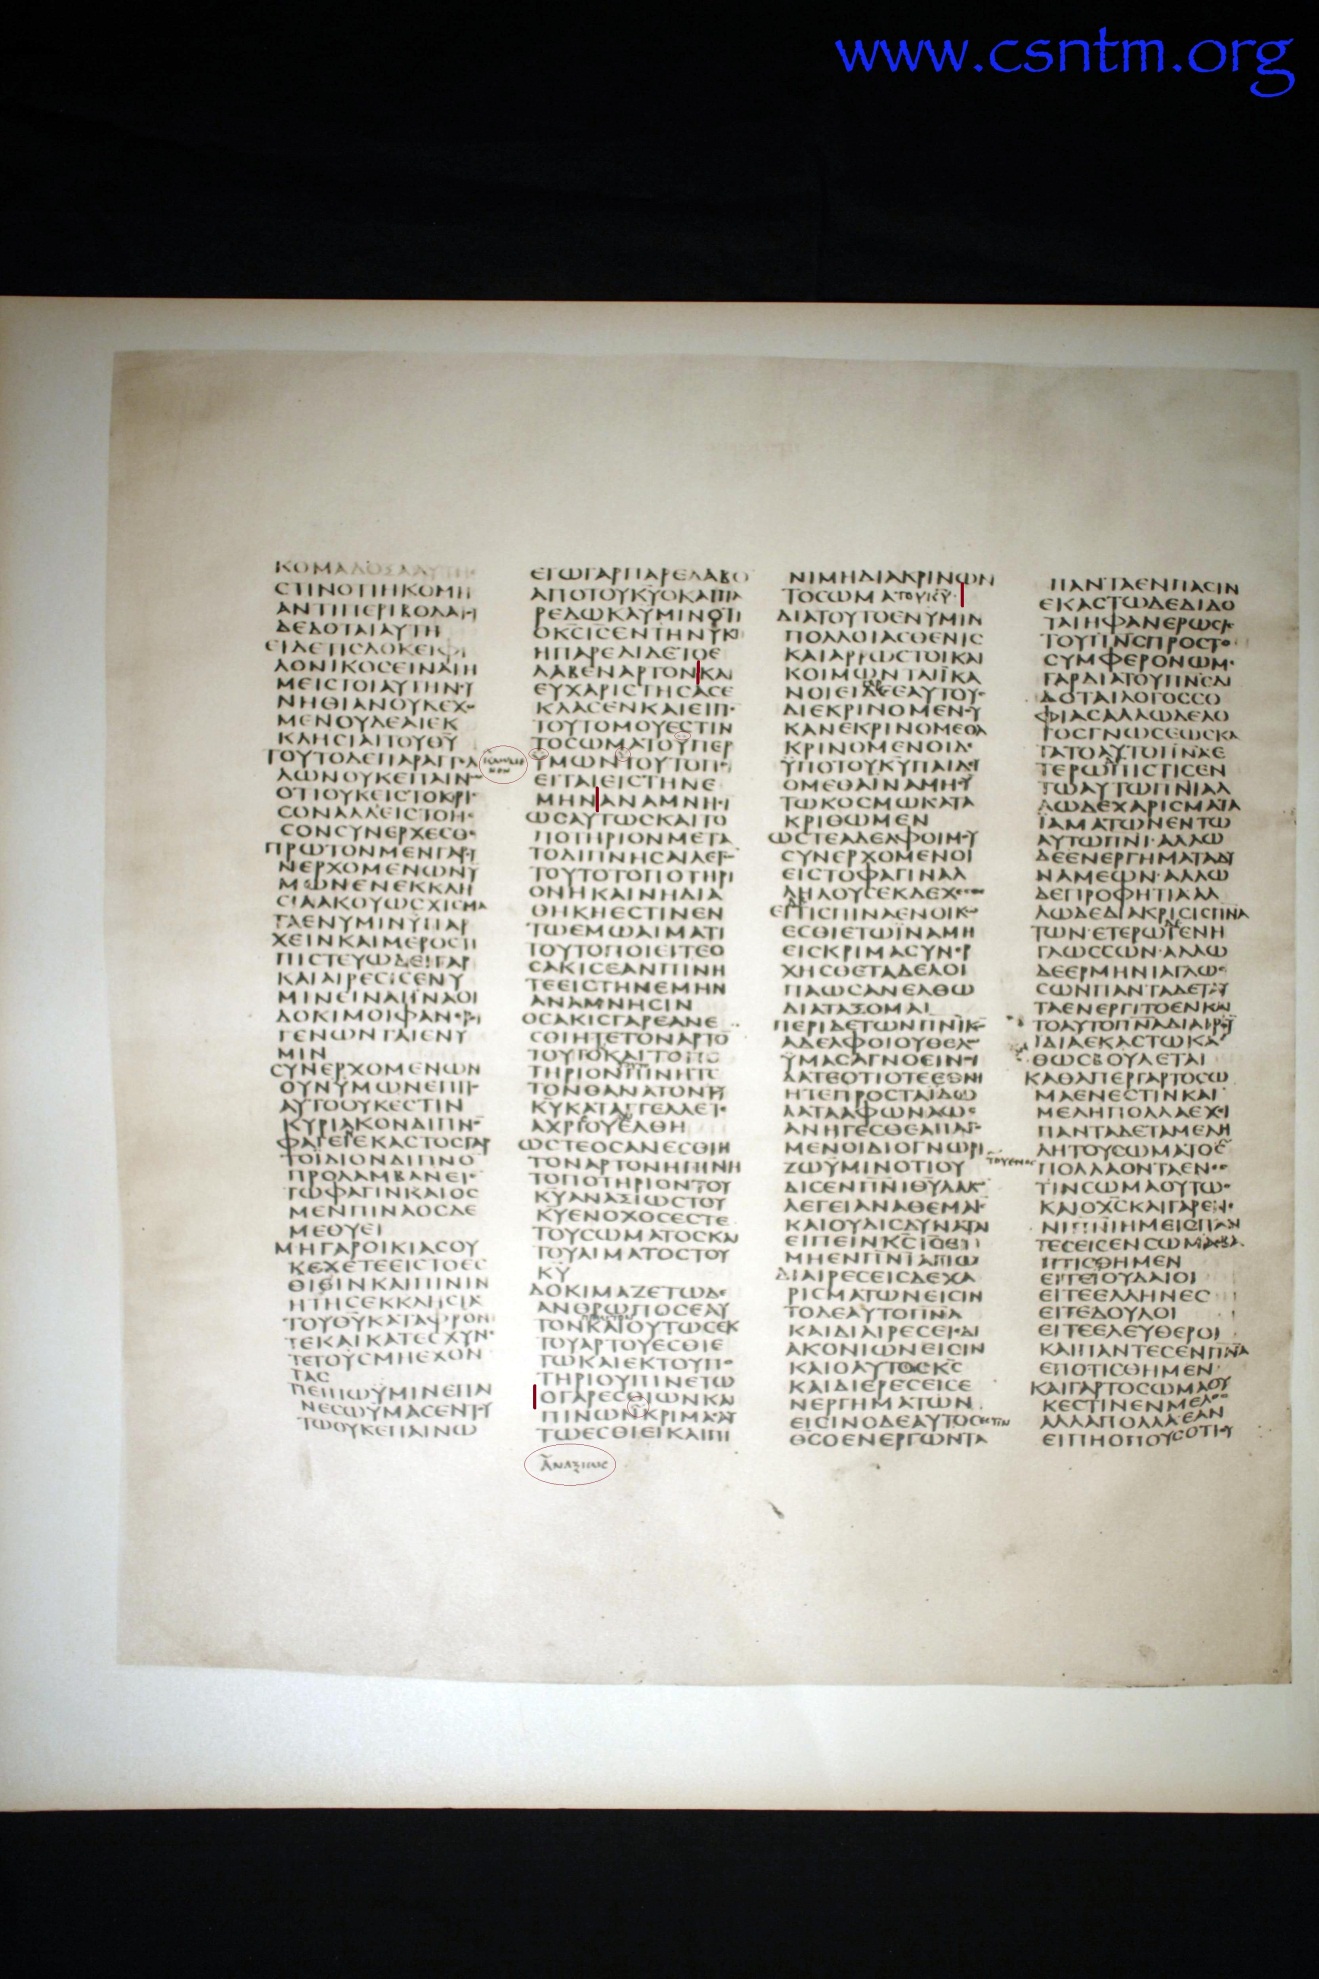 www.csntm.org
ΚΟΜΑ
ϹΤΙΝΟΤΙΗΚΟΜΗ
ΑΝΤΙΠΕΡΙΒΟΛΑΙΟΥ
ΔΕΔΟΤΑΙΑΥΤΗ
ΕΙΔΕΤΙϹΔΟΚΕΙΦΙ
ΛΟΝΙΚΟϹΕΙΝΑΙΗ
ΜΕΙϹΤΟΙΑΥΤΗΝϹΥ
ΝΗΘΙΑΝΟΥΚΕΧΟ
ΜΕΝΟΥΔΕΑΙΕΚ
ΚΛΗϹΙΑΙΤΟΥΘΥ
ΤΟΥΤΟΔΕΠΑΡΑΓΓΕΛ
ΛΩΝΟΥΚΕΠΑΙΝΩ
ΟΤΙΟΥΚΕΙϹΤΟΚΡΙϹ
ϹΟΝΑΛΛΕΙϹΤΟΗϹ
ϹΟΝϹΥΝΕΡΧΕϹΘΕ
ΠΡΩΤΟΝΜΕΝΓΑΡϹΥ
ΝΕΡΧΟΜΕΝΩΝΥ
ΜΩΝΕΝΕΚΚΛΗ
ϹΙΑΑΚΟΥΩϹΧΙϹΜΑ
ΤΑΕΝΥΜΙΝΥΠΑΡ
ΧΕΙΝΚΑΙΜΕΡΟϹΤΙ
ΠΙϹΤΕΥΩΔΕΙΓΑΡ
ΚΑΙΑΙΡΕϹΙϹΕΝΥ
ΜΙΝΕΙΝΑΙΙΝΑΟΙ
ΔΟΚΙΜΟΙΦΑΝΕΡΟΙ
ΓΕΝΩΝΤΑΙΕΝΥ
ΜΙΝ
ϹΥΝΕΡΧΟΜΕΝΩΝ
ΟΥΝΥΜΩΝΕΠΙΤΟ
ΑΥΤΟΟΥΚΕϹΤΙΝ
ΚΥΡΙΑΚΟΝΔΙΠΝΟΝ
ΦΑΓΕΙΕΚΑϹΤΟϹΓΑΡ
ΤΟΙΔΙΟΝΔΙΠΝΟ
ΠΡΟΛΑΜΒΑΝΕΙΕΝ
ΤΩΦΑΓΙΝΚΑΙΟϹ
ΜΕΝΠΙΝΑΟϹΔΕ
ΜΕΘΥΕΙ
ΜΗΓΑΡΟΙΚΙΑϹΟΥ
ΚΕΧΕΤΕΕΙϹΤΟΕϹ
ΘΙΕΙΝΚΑΙΠΙΝΙΝ
ΗΤΗϹΕΚΚΛΗϹΙΑϹ
ΤΟΥΘΥΚΑΤΑΦΡΟΝΙ
ΤΕΚΑΙΚΑΤΕϹΧΥΝΕ
ΤΕΤΟΥϹΜΗΕΧΟΝ
ΤΑϹ
ΤΙΕΙΠΩΥΜΙΝΕΠΑΙ
ΝΕϹΩΥΜΑϹΕΝΤΟΥ
ΤΩΟΥΚΕΠΑΙΝΩ
ΕΓΩΓΑΡΠΑΡΕΛΑΒΟ
ΑΠΟΤΟΥΚΥΟΚΑΙΠΑ
ΡΕΔΩΚΑΥΜΙΝΟΤΙ
ΟΚϹΙϹΕΝΤΗΝΥΚΤΙ
ΗΠΑΡΕΔΙΔΕΤΟΕ
ΛΑΒΕΝΑΡΤΟΝΚΑΙ
ΕΥΧΑΡΙϹΤΗϹΑϹΕ
ΚΛΑϹΕΝΚΑΙΕΙΠΕ
ΤΟΥΤΟΜΟΥΕϹΤΙΝ
ΤΟϹΩΜΑΤΟΥΠΕΡ
ΥΜΩΝΤΟΥΤΟΠΟΙ
ΕΙΤΑΙΕΙϹΤΗΝΕ
ΜΗΝΑΝΑΜΝΗϹΙ
ΩϹΑΥΤΩϹΚΑΙΤΟ
ΠΟΤΗΡΙΟΝΜΕΤΑ
ΤΟΔΙΠΝΗϹΑΙΛΕΓΩ
ΤΟΥΤΟΤΟΠΟΤΗΡΙ
ΟΝΗΚΑΙΝΗΔΙΑ
ΘΗΚΗΕϹΤΙΝΕΝ
ΤΩΕΜΩΑΙΜΑΤΙ
ΤΟΥΤΟΠΟΙΕΙΤΕΟ
ϹΑΚΙϹΕΑΝΠΙΝΗ
ΤΕΕΙϹΤΗΝΕΜΗΝ
ΑΝΑΜΝΗϹΙΝ
ΟϹΑΚΙϹΓΑΡΕΑΝΕ
ϹΘΙΗΤΕΤΟΝΑΡΤΟ
ΤΟΥΤΟΚΑΙΤΟΠΟ
ΤΗΡΙΟΝΠΙΝΗΤΕ
ΤΟΝΘΑΝΑΤΟΝΤΟΥ
ΚΥΚΑΤΑΓΓΕΛΛΕΤΕ
ΑΧΡΙΟΥΕΛΘΗ
ΩϹΤΕΟϹΑΝΕϹΘΙΗ
ΤΟΝΑΡΤΟΝΗΠΙΝΗ
ΤΟΠΟΤΗΡΙΟΝΤΟΥ
ΚΥΑΝΑΞΙΩϹΤΟΥ
ΚΥΕΝΟΧΟϹΕϹΤΕ
ΤΟΥϹΩΜΑΤΟϹΚΑΙ
ΤΟΥΑΙΜΑΤΟϹΤΟΥ
ΚΥ
ΔΟΚΙΜΑΖΕΤΩΔΕ
ΑΝΘΡΩΠΟϹΕΑΥ
ΤΟΝΚΑΙΟΥΤΩϹΕΚ
ΤΟΥΑΡΤΟΥΕϹΘΙΕ
ΤΩΚΑΙΕΚΤΟΥΠΟ
ΤΗΡΙΟΥΠΙΝΕΤΩ
ΟΓΑΡΕϹΘΙΩΝΚΑΙ
ΠΙΝΩΝΚΡΙΜΑΕΑΥ
ΤΩΕϹΘΙΕΙΚΑΙΠΙ
ΑΝΑΞΙΩϹ
ΝΙΜΗΔΙΑΚΡΙΝΩΝ
ΤΟϹΩΜΑΤΟΥΚΥ
ΔΙΑΤΟΥΤΟΕΝΥΜΙΝ
ΠΟΛΛΟΙΑϹΘΕΝΙϹ
ΚΑΙΑΡΡΩϹΤΟΙΚΑΙ
ΚΟΙΜΩΝΤΑΙΪΚΑ
ΝΟΙΕΙΔΕΕΑΥΤΟΥϹ
ΔΙΕΚΡΙΝΟΜΕΝΟΥ
ΚΑΝΕΚΡΙΝΟΜΕΘΑ
ΚΡΙΝΟΜΕΝΟΙΔΕ
ΥΠΟΤΟΥΚΥΠΑΙΔΕΥ
ΟΜΕΘΑΙΝΑΜΗϹΥ
ΤΩΚΟϹΜΩΚΑΤΑ
ΚΡΙΘΩΜΕΝ
ΩϹΤΕΑΔΕΛΦΟΙΜΟΥ
ϹΥΝΕΡΧΟΜΕΝΟΙ
ΕΙϹΤΟΦΑΓΙΝΑΛ
ΛΗΛΟΥϹΕΚΔΕΧΕϹΘΕ
ΕΙΤΙϹΠΙΝΑΕΝΟΙΚΩ
ΕϹΘΙΕΤΩΪΝΑΜΗ
ΕΙϹΚΡΙΜΑϹΥΝΕΡ
ΧΗϹΘΕΤΑΔΕΛΟΙ
ΠΑΩϹΑΝΕΛΘΩ
ΔΙΑΤΑΞΟΜΑΙ
ΠΕΡΙΔΕΤΩΝΠΝΙΚΩ
ΑΔΕΛΦΟΙΟΥΘΕΛΩ
ΥΜΑϹΑΓΝΟΕΙΝΟΙ
ΔΑΤΕΟΤΙΟΤΕΕΘΝΗ
ΗΤΕΠΡΟϹΤΑΙΔΩ
ΛΑΤΑΑΦΩΝΑΩϹ
ΑΝΗΓΕϹΘΕΑΠΑΓΟ
ΜΕΝΟΙΔΙΟΓΝΩΡΙ
ΖΩΥΜΙΝΟΤΙΟΥ
ΔΙϹΕΝΠΝΙΘΥΛΑΛΩ
ΛΕΓΕΙΑΝΑΘΕΜΑΙϹ
ΚΑΙΟΥΔΙϹΔΥΝΑΤΑΙ
ΕΙΠΕΙΝΚϹΙϹΕΙ
ΜΗΕΝΠΝΙΑΓΙΩ
ΔΙΑΙΡΕϹΕΙϹΔΕΧΑ
ΡΙϹΜΑΤΩΝΕΙϹΙΝ
ΤΟΔΕΑΥΤΟΠΝΑ
ΚΑΙΔΙΑΙΡΕϹΕΙϹΔΙ
ΑΚΟΝΙΩΝΕΙϹΙΝ
ΚΑΙΟΑΥΤΟϹΚϹ
ΚΑΙΔΙΕΡΕϹΕΙϹΕ
ΝΕΡΓΗΜΑΤΩΝ
ΕΙϹΙΝΟΔΕΑΥΤΟϹΕϹΤΙΝ
ΘϹΟΕΝΕΡΓΩΝΤΑ
ΠΑΝΤΑΕΝΠΑϹΙΝ
ΕΚΑϹΤΩΔΕΔΙΔΟ
ΤΑΙΗΦΑΝΕΡΩϹΙϹ
ΤΟΥΠΝϹΠΡΟϹΤΟ
ϹΥΜΦΕΡΟΝΩΜΕ
ΓΑΡΔΙΑΤΟΥΠΝϹΔΙ
ΔΟΤΑΙΛΟΓΟϹϹΟ
ΦΙΑϹΑΛΛΩΔΕΛΟ
ΓΟϹΓΝΩϹΕΩϹΚΑ
ΤΑΤΟΑΥΤΟΠΝΑΕ
ΤΕΡΩΠΙϹΤΙϹΕΝ
ΤΩΑΥΤΩΠΝΙΑΛ
ΛΩΔΕΧΑΡΙϹΜΑΤΑ
ΪΑΜΑΤΩΝΕΝΤΩ
ΑΥΤΩΠΝΙΑΛΛΩ
ΔΕΕΝΕΡΓΗΜΑΤΑΔΥ
ΝΑΜΕΩΝΑΛΛΩ
ΔΕΠΡΟΦΗΤΙΑΑΛ
ΛΩΔΕΔΙΑΚΡΙϹΙϹΠΝΑ
ΤΩΝΕΤΕΡΩΓΕΝΗ
ΓΛΩϹϹΩΝΑΛΛΩ
ΔΕΕΡΜΗΝΙΑΓΛΩϹ
ϹΩΝΠΑΝΤΑΔΕΤΑΥ
ΤΑΕΝΕΡΓΙΤΟΕΝΚΑΙ
ΤΟΑΥΤΟΠΝΑΔΙΑΙΡΟΥ
ΙΔΙΑΕΚΑϹΤΩΚΑ
ΘΩϹΒΟΥΛΕΤΑΙ
ΚΑΘΑΠΕΡΓΑΡΤΟϹΩ
ΜΑΕΝΕϹΤΙΝΚΑΙ
ΜΕΛΗΠΟΛΛΑΕΧΕΙ
ΠΑΝΤΑΔΕΤΑΜΕΛΗ
ΛΗΤΟΥϹΩΜΑΤΟϹ
ΠΟΛΛΑΟΝΤΑΕΝΕϹ
ΤΙΝϹΩΜΑΟΥΤΩϹ
ΚΑΙΟΧϹΚΑΙΓΑΡΕΝΕ
ΝΙΠΝΙΗΜΕΙϹΠΑΝ
ΤΕϹΕΙϹΕΝϹΩΜΑΕΒΑ
ΠΤΙϹΘΗΜΕΝ
ΕΙΤΕΙΟΥΔΑΙΟΙ
ΕΙΤΕΕΛΛΗΝΕϹ
ΕΙΤΕΔΟΥΛΟΙ
ΕΙΤΕΕΛΕΥΘΕΡΟΙ
ΚΑΙΠΑΝΤΕϹΕΝΠΝΑ
ΕΠΟΤΙϹΘΗΜΕΝ
ΚΑΙΓΑΡΤΟϹΩΜΑΟΥ
ΚΕϹΤΙΝΕΝΜΕΛΟϹ
ΑΛΛΑΠΟΛΛΑΕΑΝ
ΕΙΠΗΟΠΟΥϹΟΤΙΟΥ